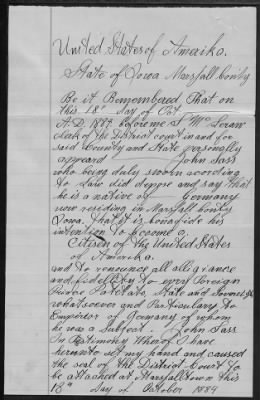 United States of Amerika.
State of Iowa Marshall County
Be it Remembered That on
this 18" day of Oct
A.D. 1889 before me
Clerk of the District court in and for
said County and State personally
appeard John Sass
who being duly sworn according
to Law did depose and say that
he is a native of Germany
now residing in Marshall County
Iowa. That it is bonafide his
intention to become a
Citizen of the United States
of Amerika.
and to renounce all allegiance
and fidelity to every Foreign
Prince Potentate, State and
whatsoever and Particulary to
Emperor of Germany of whom
he was a Subject. John Sass
In Testimony Whereof I have
hereunto set my hand and caused
the seal of the District Court to
be attached at Marshalltown this
18" day of October 1889